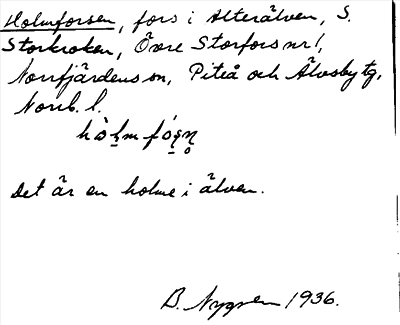 Holmforsen, fors i Alterälven, S.
Storkroken, Övre Storfors nr 1,
Norrfjärdens sn, Piteå och Älvsby tg,
Norrb. l.
Det är en holme i älven.
B. Nygren 1936.